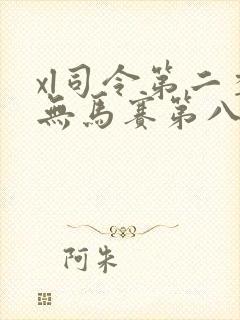 xl司令第二
無馬賽第八
阿朱